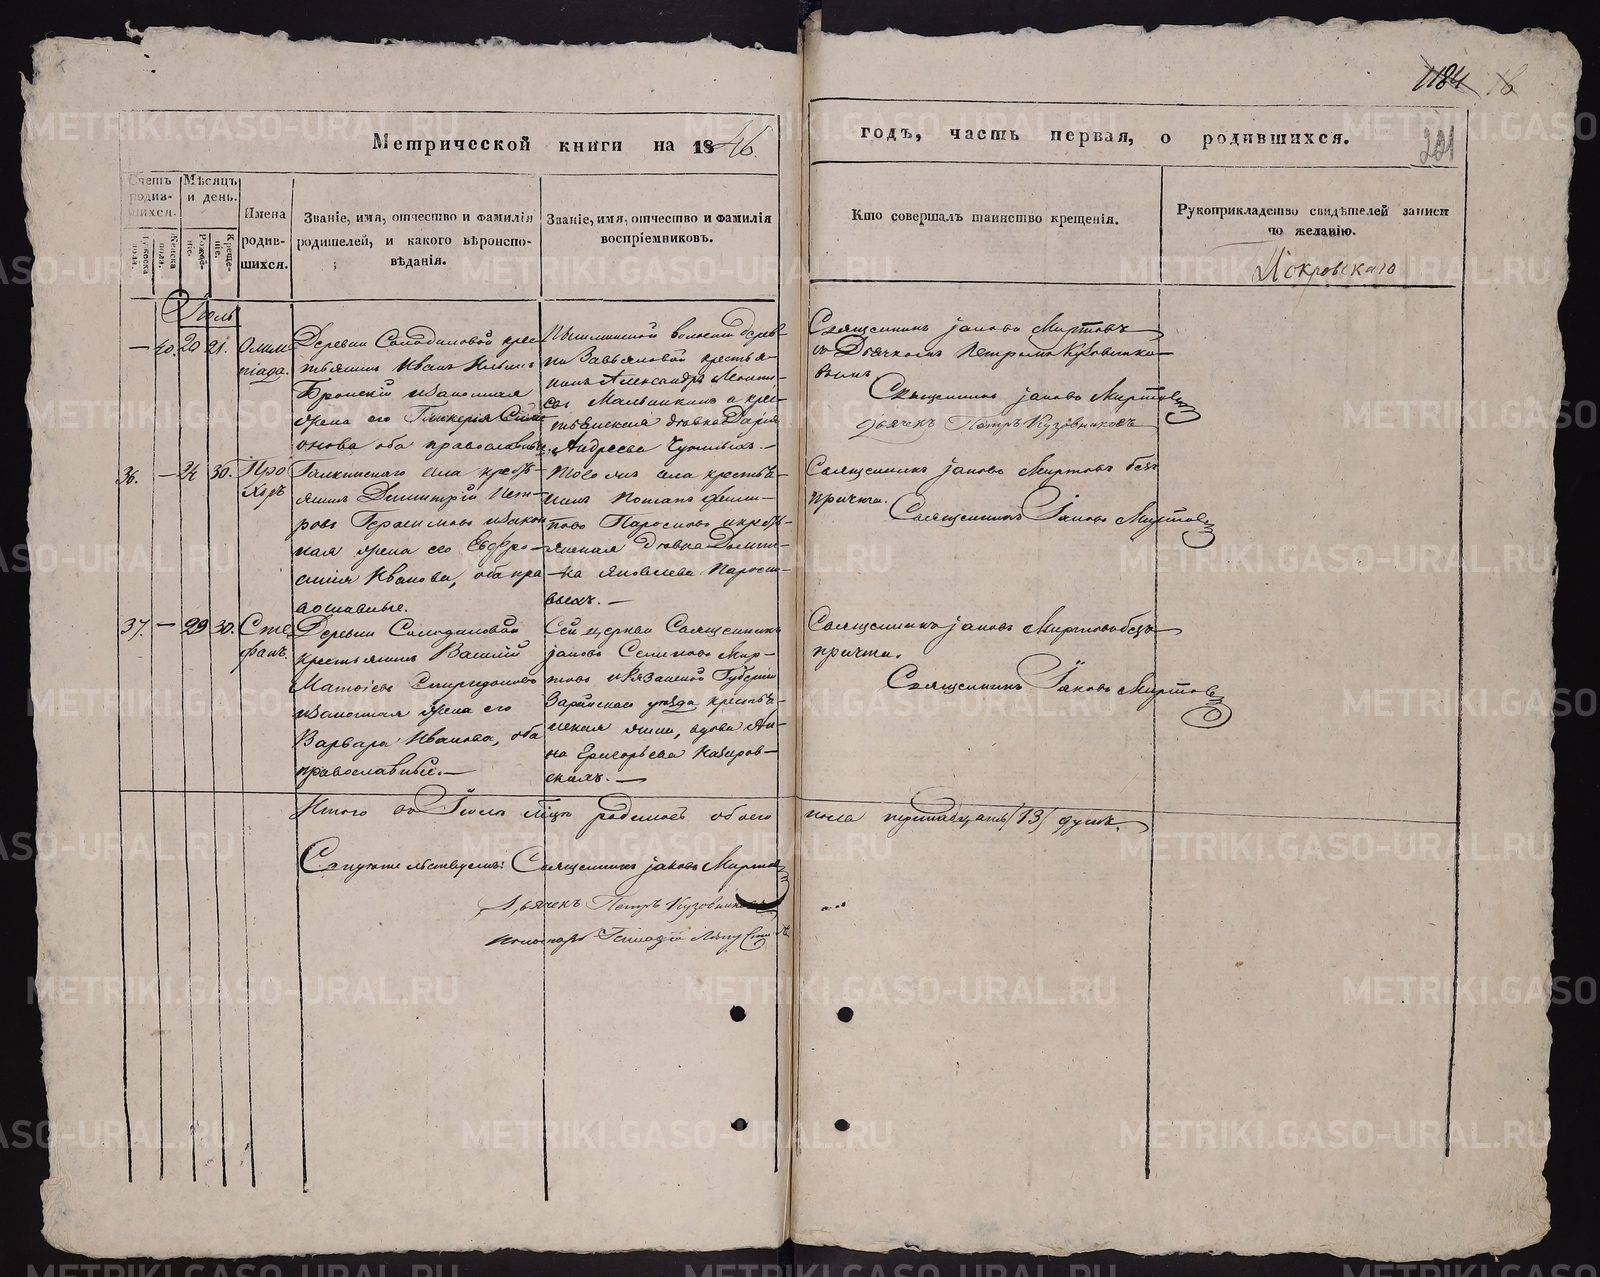 1184
201
Метрической книги на 1846.
годъ, часть первая, о родившихся.
Счетъ родив-шихся.
Мѣсяцъ и день.
Мужеска пола.
Женска пола.
Рожде-ніе.
Креще-ніе.
Имена
родив-
шихся.
Званіе, имя, отчество и фамилія
родителей, и какого вѣроиспо-
вѣданія.
Званіе, имя, отчество и фамилія
воспріемниковъ.
Кто совершалъ таинство крещенія.
Рукоприкладство свидѣтелей записи
по желанію.
Покровскаго
Іюль
— 40. 20 21.
Олим
піада.
Деревни Солодиловой крес
тьянинъ Иванъ Ильинъ
законная
жена его Гликерія Сими
онова оба православные.
Пышминской волости дерев-
ни Завьяловой крестья-
нинъ Александръ Леонть-
евъ Мальцовъ и крес-
тьянская дѣвка Дарья
Андреева
Священникъ Іаковъ Миртовъ
съ Дьячкомъ Петромъ Кузовнико-
вымъ
Священникъ Іаковъ Миртовъ
Дьячекъ Петръ Кузовниковъ
36. — 24 30.
Про
хоръ
Галкинскаго села кресть-
янинъ Димитрій Пет-
ровъ Герасимовъ и закон
ная жена его Евфро-
синія Иванова, оба пра
вославные.
Тоголжъ села крестья-
нинъ Потапъ Филип-
повъ и кресть-
янская дѣвка Домни-
ка Яковлева
выхъ. —
Священникъ Іаковъ Миртовъ безъ
причта.
Священникъ Іаковъ Миртовъ
37. — 29 30.
Сте
фанъ.
Деревни Солодиловой
крестьянинъ Василій
Матвіевъ Спиридоновъ
и законная жена его
Варвара Иванова, оба
православные. —
Сей церкви Священникъ
Іаковъ Симеоновъ Мир-
товъ и Рязанской Губерніи
Зарайскаго уѣзда крестья-
нская жена, вдова Ан-
на Григорьева Назаров-
скихъ. —
Священникъ Іаковъ Миртовъ безъ
причта.
Священникъ Іаковъ Миртовъ
Итого въ Іюлѣ мѣцѣ родилось обоего
пола тринадцать /13/ душъ.
Священникъ Іаковъ Миртовъ
Дьячекъ Петръ Кузовниковъ
Пономарь
METRIKI.GASO-URAL.RU